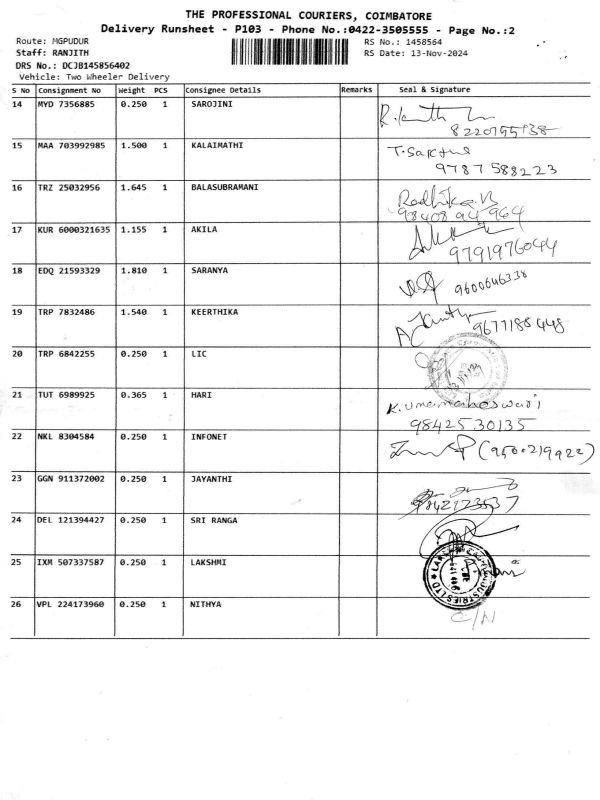 THE PROFESSIONAL COURIERS, COIMBATORE
Delivery Runsheet - P103 - Phone No.:0422-3505555 - Page No.:2
Route: MGPUDUR
RS No.: 1458564
Staff: RANJITH
RS Date: 13-Nov-2024
DRS No.: DCJB145856402
Vehicle: Two Wheeler Delivery
S No Consignment No Weight PCS Consignee Details Remarks Seal & Signature
14 MYD 7356885 0.250 1 SAROJINI
15 MAA 703992985 1.500 1 KALAIMATHI T. Sakthi
9787588223
16 TRZ 25032956 1.645 1 BALASUBRAMANI Radhika.B
98408 94 964
17 KUR 6000321635 1.155 1 AKILA
9791976044
18 EDQ 21593329 1.810 1 SARANYA 9600646338
19 TRP 7832486 1.540 1 KEERTHIKA
9677188448
20 TRP 6842255 0.250 1 LIC
21 TUT 6989925 0.365 1 HARI K. Umamaheswari
98425 30135
22 NKL 8304584 0.250 1 INFONET
23 GGN 911372002 0.250 1 JAYANTHI
24 DEL 121394427 0.250 1 SRI RANGA
25 IXM 507337587 0.250 1 LAKSHMI
INDUSTRIES LTD
26 VPL 224173960 0.250 1 NITHYA C/N